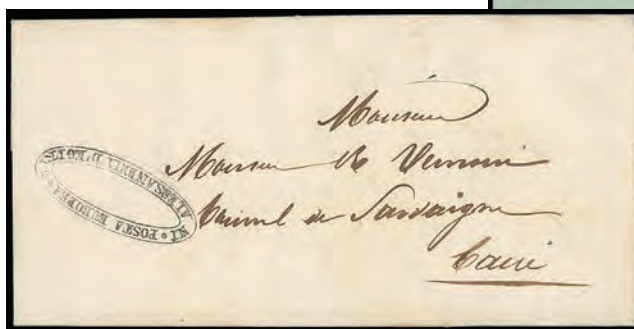 POSTA EUROPEA * IN ALESSANDRIA D'EGITTO
Monsieur
Monsieur
Consul de Sardaigne
Caire